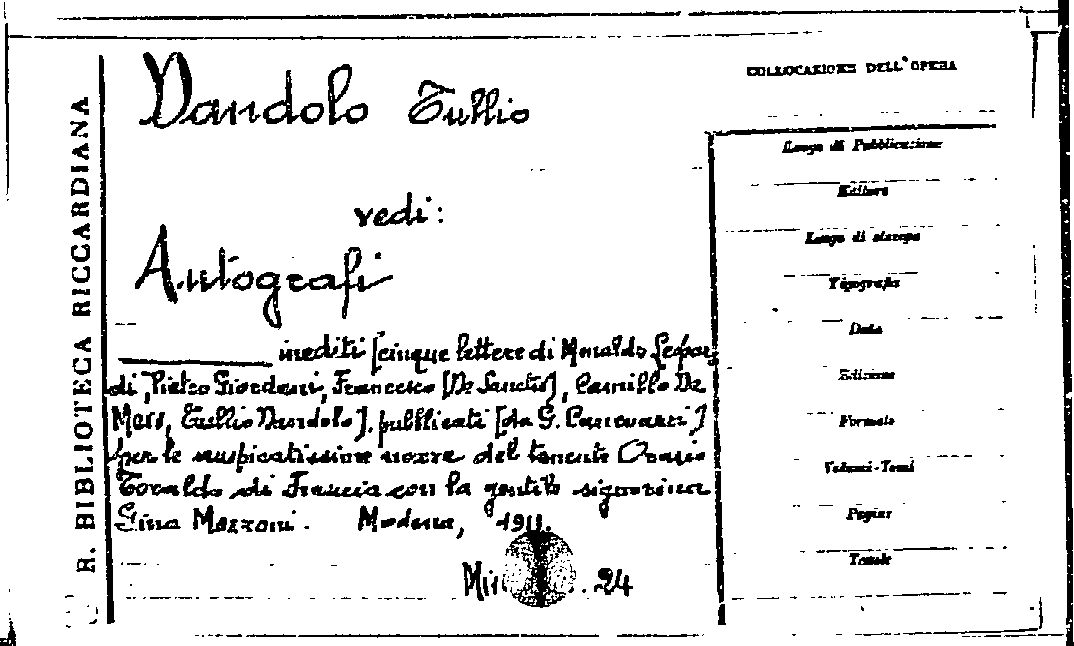 R. BIBLIOTECA RICCARDIANA
Dandolo Tullio
vedi:
Autografi
inediti [cinque lettere di Monaldo Leopar
di, Pietro Giordani, Francesco [De Sanctis], Camillo De
Meis, Tullio Dandolo]. pubblicati [da G. Canevazzi]
per le auspicatissime nozze del tenente Orazio
Toraldo di Francia con la gentile signorina
Gina Mazzoni. Modena, 1911.
24
COLLOCAZIONE DELL'OPERA
Luogo di Pubblicazione
Editore
Luogo di stampa
Tipografia
Data
Edizione
Formato
Volumi-Tomi
Pagine
Tavole